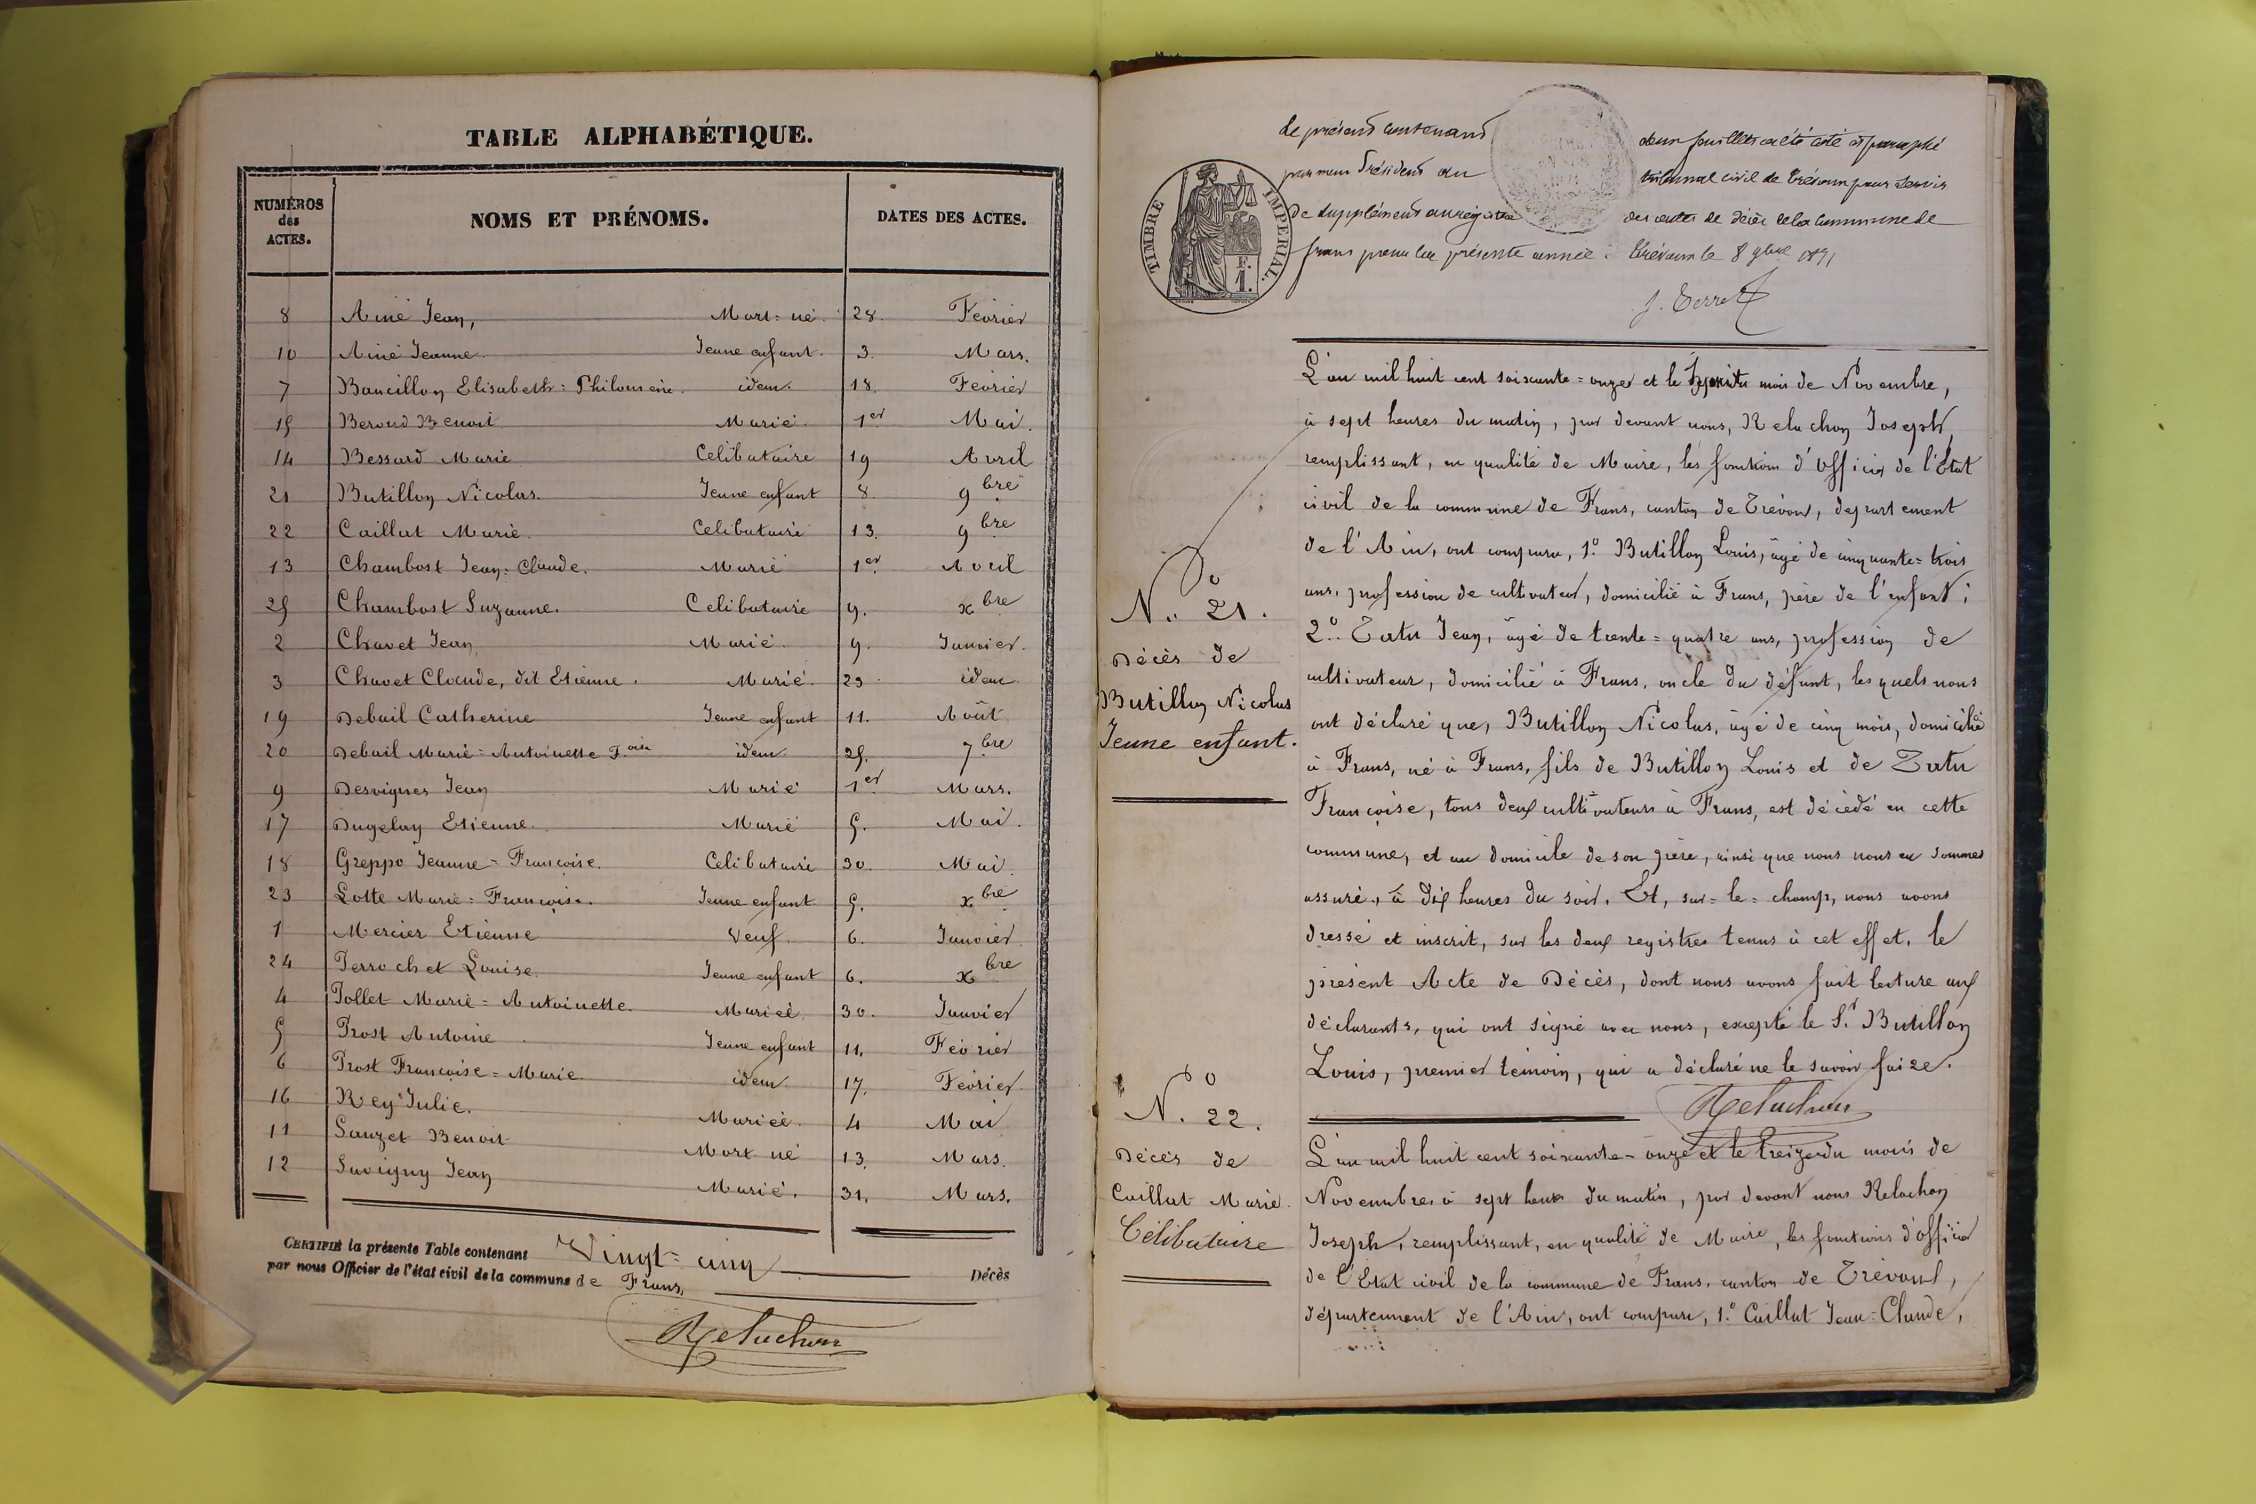 TABLE ALPHABÉTIQUE.
NUMÉROS des ACTES. NOMS ET PRÉNOMS. DATES DES ACTES.
8 Aimé Jean, Mort=né. 28. Février
10 Aimé Jeanne. Jeune enfant. 3. Mars.
7 Bancillon Elisabeth=Philomène. idem. 18. Février
15 Beroud Benoit Marié. 1er Mai.
14 Bessard Marie Célibataire 19 Avril
21 Butillon Nicolas. Jeune enfant 8. 9bre
22 Caillat Marie. Célibataire 13. 9bre
13 Chambost Jean=Claude. Marié 1er Avril
25 Chambost Suzanne. Célibataire 9. xbre
2 Chavet Jean Marié. 9. Janvier.
3 Chavet Claude, dit Etienne. Marié. 23. idem.
19 Debail Catherine Jeune enfant 11. Août
20 Debail Marie=Antoinette Foise idem. 25. 7bre
9 Desvignes Jean Marié 1er Mars.
17 Dugelay Etienne. Marié 5. Mai.
18 Greppo Jeanne=Françoise. Célibataire 30. Mai.
23 Lotte Marie=Françoise. Jeune enfant 5. xbre
1 Mercier Etienne Veuf. 6. Janvier
24 Perrochet Louise. Jeune enfant 6. xbre
4 Pollet Marie=Antoinette. Mariée 30. Janvier
5 Prost Antoine Jeune enfant 11. Février
6 Prost Françoise=Marie idem. 17. Février
16 Rey Julie. Mariée. 4 Mai
11 Sauzet Benoit Mort né 13. Mars.
12 Savigny Jean Marié. 31. Mars.
CERTIFIÉ la présente Table contenant Vingt=cinq Décès
par nous Officier de l'état civil de la commune de Frans,
Reluchon
le présent contenant deux feuillets a été coté et paraphé
par nous Président du tribunal civil de Trévoux pour servir
de supplément au registre des actes de décès de la Commune de
frans pour la présente année. Trévoux le 8 9bre 1871
J. Terret
TIMBRE IMPÉRIAL.
F. 1.
L'an mil huit cent soixante=onze et le du mois de Novembre,
à sept heures du matin, par devant nous, Reluchon Joseph,
remplissant, en qualité de Maire, les fonctions d'Officier de l'État
civil de la commune de Frans, canton de Trévoux, département
de l'Ain, ont comparu, 1.º Butillon Louis, âgé de cinquante=trois
ans, profession de cultivateur, domicilié à Frans, père de l'enfant;
2.º Tatu Jean, âgé de trente=quatre ans, profession de
cultivateur, domicilié à Frans, oncle du défunt, lesquels nous
ont déclaré que, Butillon Nicolas, âgé de cinq mois, domicilié
à Frans, né à Frans, fils de Butillon Louis et de Tatu
Françoise, tous deux cultivateurs à Frans, est décédé en cette
commune, et au domicile de son père, ainsi que nous nous en sommes
assuré, à dix heures du soir. Et, sur=le=champ, nous avons
dressé et inscrit, sur les deux registres tenus à cet effet, le
présent Acte de Décès, dont nous avons fait lecture aux
déclarants, qui ont signé avec nous, excepté le Sr. Butillon
Louis, premier témoin, qui a déclaré ne le savoir faire.
Reluchon
Nº. 21.
Décès de
Butillon Nicolas
Jeune enfant.
Nº. 22.
Décès de
Caillat Marie.
Célibataire
L'an mil huit cent soixante=onze et le treize du mois de
Novembre, à sept heures du matin, par devant nous Reluchon
Joseph, remplissant, en qualité de Maire, les fonctions d'Officier
de l'État civil de la commune de Frans, canton de Trévoux,
département de l'Ain, ont comparu, 1.º Caillat Jean=Claude,